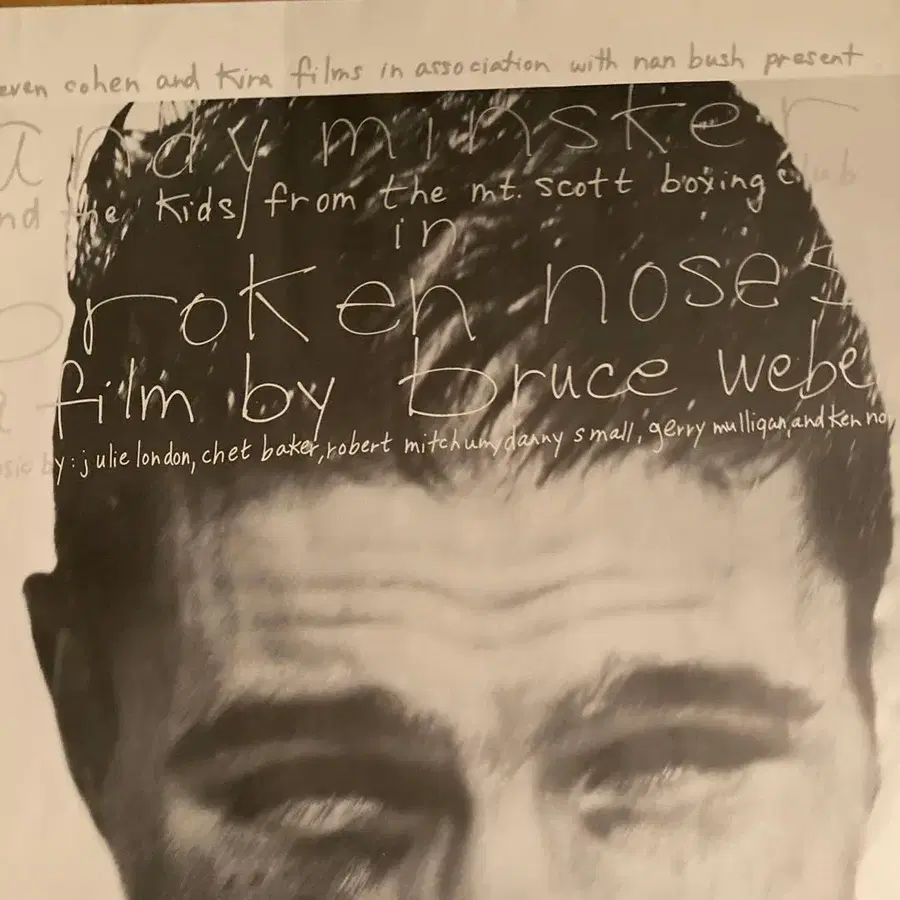 even cohen and kira films in association with nan bush present
andy minsker
nd the kids from the mt. scott boxing club
in
broken noses
a film by bruce webe
sic by: julie london, chet baker, robert mitchum, danny small, gerry mulligan, and ken no